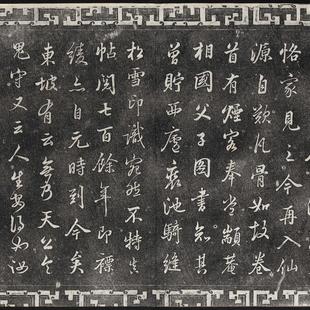 恪家見之今再入仙
源自歎凡骨如故卷
首有煙客奉常顓菴
相國父子圖書知其
曾貯西廬裘池騎縫
松雪印識宛然不特真
帖閱七百餘年即褾
綾亦自元時到今矣
東坡有云無乃天公令
鬼守又云人生安得如汝